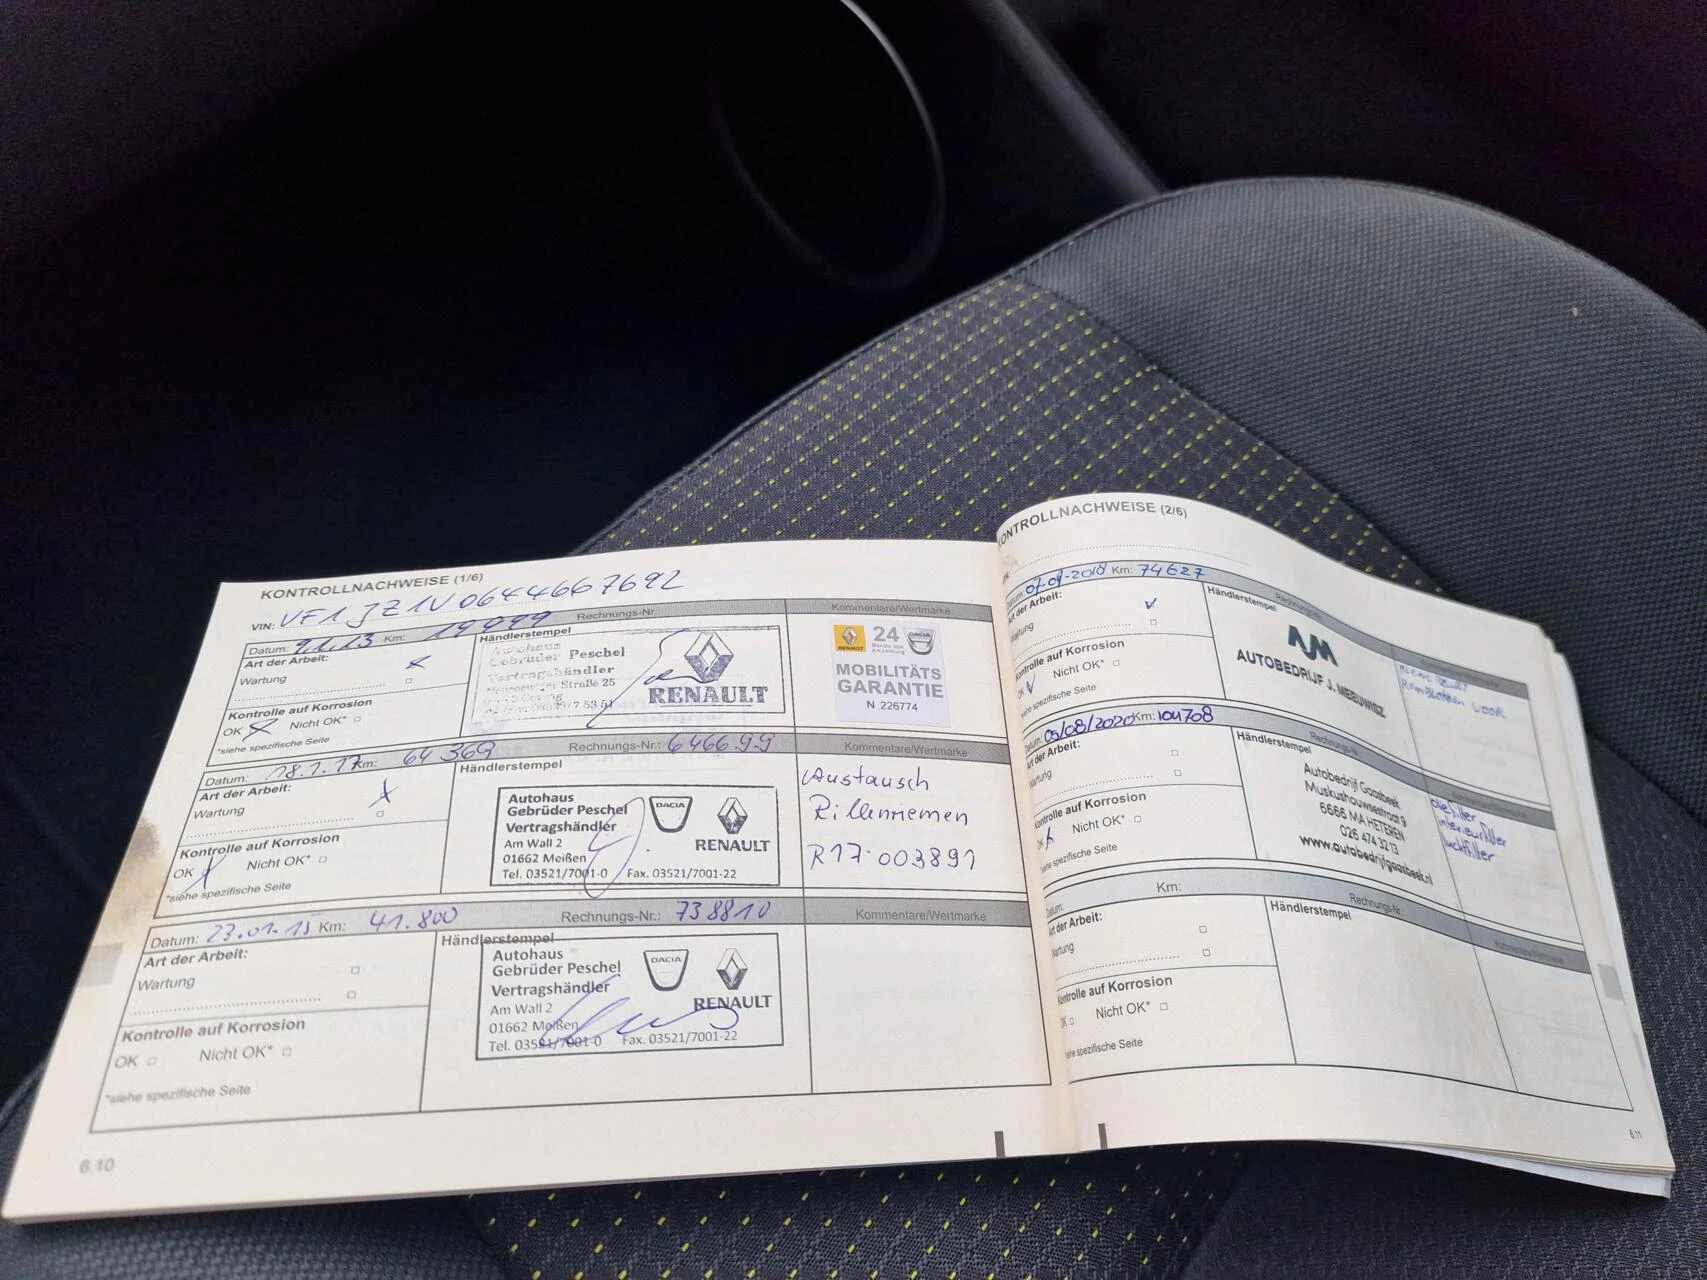 KONTROLLNACHWEISE (1/6)
VIN: VF1JZ1V0644667692
Datum: 9.1.13 Km: 19999 Rechnungs-Nr.:
Kommentare/Wertmarke
Art der Arbeit:
Wartung
Händlerstempel
Autohaus
Gebrüder Peschel
Vertragshändler
Straße 25
RENAULT
RENAULT
24
DACIA
MOBILITÄTS
GARANTIE
N 226774
Kontrolle auf Korrosion
OK Nicht OK*
*siehe spezifische Seite
Datum: 18.1.17 Km: 64 369 Rechnungs-Nr.: 646699
Kommentare/Wertmarke
Art der Arbeit:
Wartung
Händlerstempel
Autohaus
Gebrüder Peschel
Vertragshändler
Am Wall 2
01662 Meißen
Tel. 03521/7001-0 Fax. 03521/7001-22
DACIA
RENAULT
Austausch
Rillenriemen
R17.003891
Kontrolle auf Korrosion
OK Nicht OK*
*siehe spezifische Seite
Datum: 23.01.15 Km: 41.800 Rechnungs-Nr.: 738810
Kommentare/Wertmarke
Art der Arbeit:
Wartung
Händlerstempel
Autohaus
Gebrüder Peschel
Vertragshändler
Am Wall 2
01662 Meißen
Tel. 03521/7001-0 Fax. 03521/7001-22
DACIA
RENAULT
Kontrolle auf Korrosion
OK Nicht OK*
*siehe spezifische Seite
6.10
KONTROLLNACHWEISE (2/6)
Datum: 07-09-2018 Km: 74627
Rechnungs-Nr.:
Art der Arbeit:
Wartung
Händlerstempel
AJM
AUTOBEDRIJF J. MEEUWISZ
VOOR
Kontrolle auf Korrosion
OK Nicht OK*
*siehe spezifische Seite
Datum: 05/08/2020 Km: 104708
Rechnungs-Nr.:
Art der Arbeit:
Wartung
Händlerstempel
Autobedrijf Gaasbeek
Muskushouwsestraat 9
6666 MA HETEREN
026 474 3213
www.autobedrijfgaasbeek.nl
interieurfilter
luchtfilter
Kontrolle auf Korrosion
OK Nicht OK*
*siehe spezifische Seite
Datum: Km: Rechnungs-Nr.:
Kommentare/Wertmarke
Art der Arbeit:
Wartung
Händlerstempel
Kontrolle auf Korrosion
OK Nicht OK*
*siehe spezifische Seite
6.11